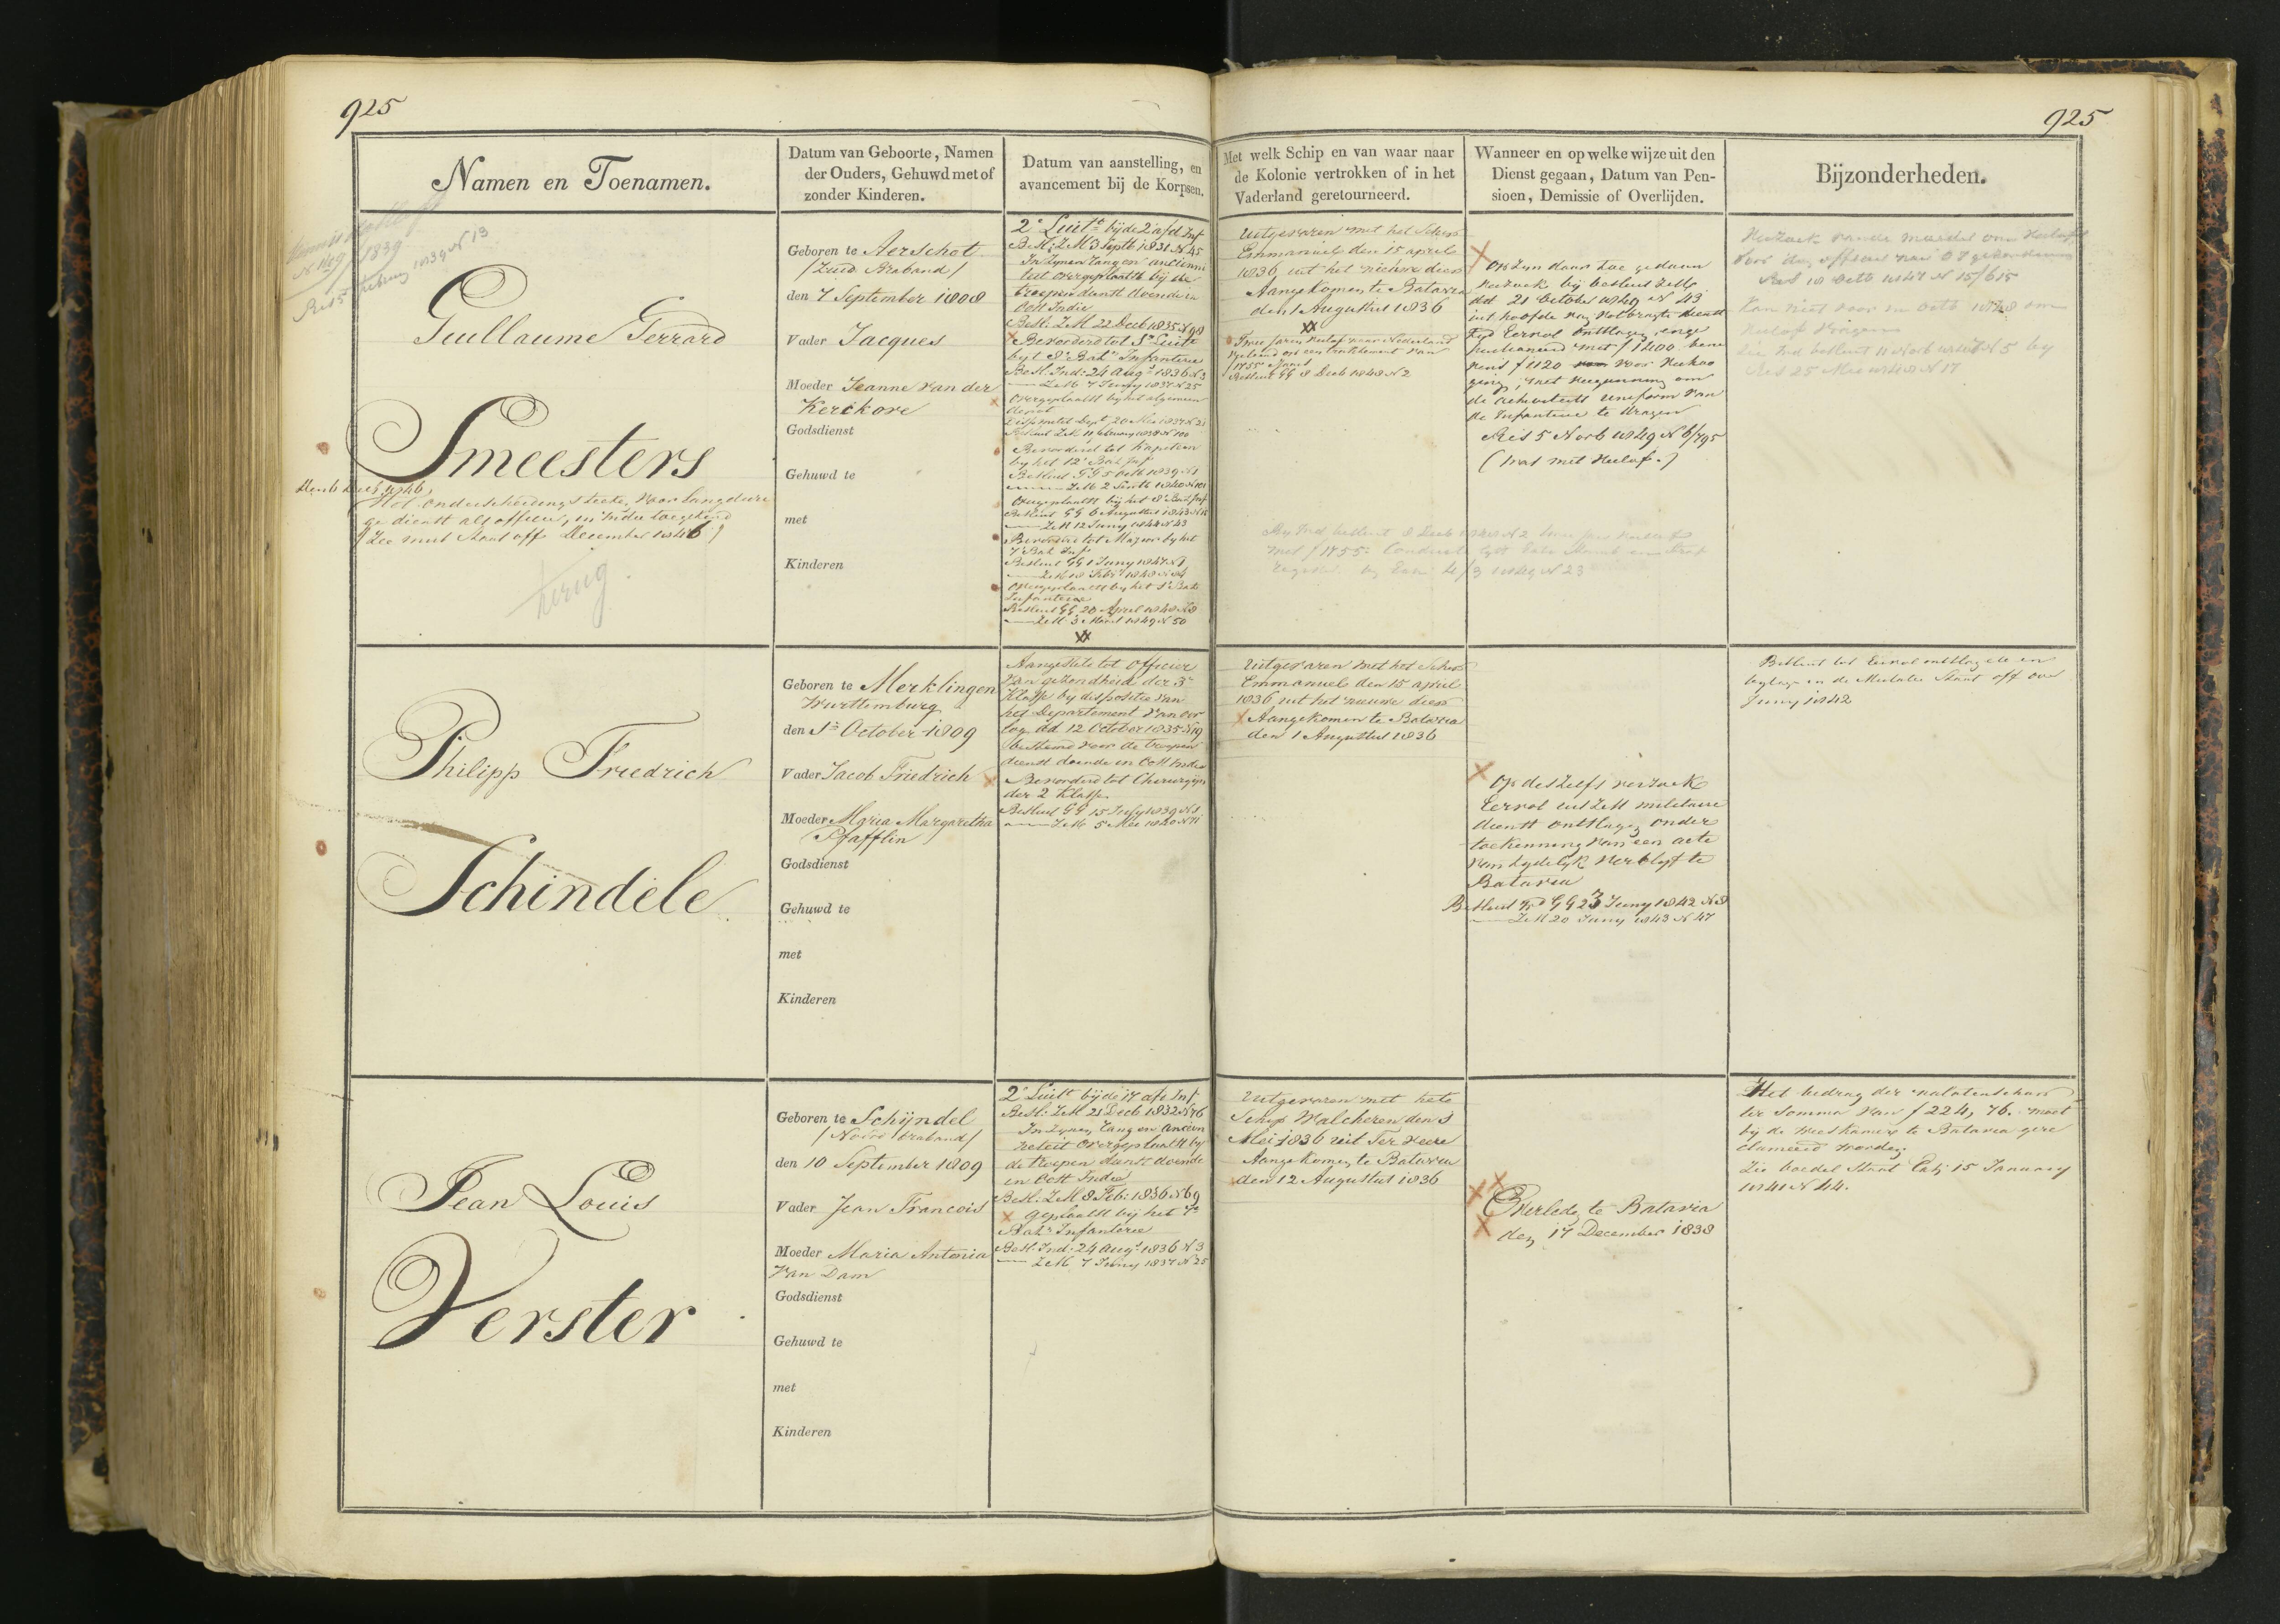 925
925
Namen en Toenamen.
Datum van Geboorte, Namen
der Ouders, Gehuwd met of
zonder Kinderen.
Datum van aanstelling, en
avancement bij de Korpsen.
Met welk Schip en van waar naar
de Kolonie vertrokken of in het
Vaderland geretourneerd.
Wanneer en op welke wijze uit den
Dienst gegaan, Datum van Pen-
sioen, Demissie of Overlijden.
Bijzonderheden.
Guillaume Gerrard
Smeesters
Het onderscheidingsteeken voor langduri
ge dienst als officier, in Indie toegekend
(Zie mut Staat off December 1846)
terug.
Geboren te Aerschot
/Zuid Braband/
den 7 September 1808
Vader Jacques
Moeder Jeanne van der
Kerckove
Godsdienst
Gehuwd te
met
Kinderen
2e Luitt bij de 2 afd Inf
Besl: ZM 3 Septb 1831 N 45
In zynen rang en ancienni
teit overgeplaatst bij de
troepen dienst doende in
Oost Indie
Besl: ZM 22 Decb 1835 N 98
Bevorderd tot 1e Luitt
by t 8e Batn Infanterie
Besl. Ind: 24 Augt 1836 N 3
ZM 7 Juny 1837 N 25
overgeplaatst by het algemeen
depot
Bevorderd tot Kapitein
by het 12e Bat Inf
Besluit GG 5 Octb 1839 N 1
ZM 2 Septb 1840 N 101
Overgeplaatst bij het 8e Bat Inf
Besluit GG 6 Augustus 1843 N 18
ZM 12 Juny 1844 N 43
Bevorderd tot Majoor by het
7e Bat Inf
Besluit GG 1 Juny 1847 N 1
ZM 18 Febr 1848 N 84
overgeplaatst by het 1e Bat
Infanterie
Besluit GG 20 April 1848 N 8
ZM 3 Maart 1849 N 50
Uitgevaren met het Schip
Emmanuel den 15 april
1836 uit het nieuwe diep
Aangekomen te Batavia
den 1 Augustus 1836
Twee jaren verlof naar Nederland
verleend op een traktement van
f 1755 's jaars
Besluit GG 8 Decb 1848 N 2
Op zyn daar toe gedaan
verzoek bij besluit ZM
dd 21 October 1849 N 43
uit hoofde van volbragte dienst
tyd Eervol ontslagen, en ge
pensioneerd met f 1400 bene
vens f 1120 voor verhoo
ging; met vergunning om
de activiteits uniform van
de Infanterie te dragen
Res 5 Novb 1849 N 6/795
(was met verlof.)
Philipp Friedrich
Schindele
Geboren te Merklingen
Wurttemburg
den 1e October 1809
Vader Jacob Friedrich
Moeder Maria Margaretha
Pfafflin
Godsdienst
Gehuwd te
met
Kinderen
Aangesteld tot Officier
van gezondheid der 3e
Klasse by dispositie van
het Departement van oor
log dd 12 October 1835 N 19
bestemd voor de troepen
dienst doende in Oost Indie
Bevorderd tot Chirurgijn
der 2 Klasse
Besluit GG 15 July 1839 N 1
ZM 5 Mei 1840 N 71
Uitgevaren met het Schip
Emmanuel den 15 april
1836 uit het nieuwe diep
Aangekomen te Batavia
den 1 Augustus 1836
Op deszelfs verzoek
Eervol uit ZM militaire
dienst ontslagen onder
toekenning van een acte
van tydelyk verblyf te
Batavia
Besluit GG 23 Juny 1842 N 8
ZM 20 Juny 1843 N 47
Besluit tot Eervol ontslag
bylage in de Mutatie Staat off over
Juny 1842
Jean Louis
Verster
Geboren te Schijndel
/Noord Braband/
den 10 September 1809
Vader Jean Francois
Moeder Maria Antonia
van Dam
Godsdienst
Gehuwd te
met
Kinderen
2e Luitt bij de 17 afd Inf.
Besl: ZM 21 Decb 1832 N 76
In zynen rang en ancien
neteit overgeplaatst by
de troepen dienst doende
in Oost Indie
Besl: ZM 8 Feb: 1836 N 69
geplaatst bij het 7e
Batn Infanterie
Besl. Ind: 24 Augt 1836 N 3
ZM 7 Juny 1837 N 25
Uitgevaren met het
Schip Walcheren den 3
Mei 1836 uit Ter Veere
Aangekomen te Batavia
den 12 Augustus 1836
Overleden te Batavia
den 17 December 1838
Het bedrag der nalatenschap
ter somma van f 224, 76. moet
bij de weeskamer te Batavia gere
clameerd worden.
Zie boedel Staat Bat: 15 January
1841 N 44.